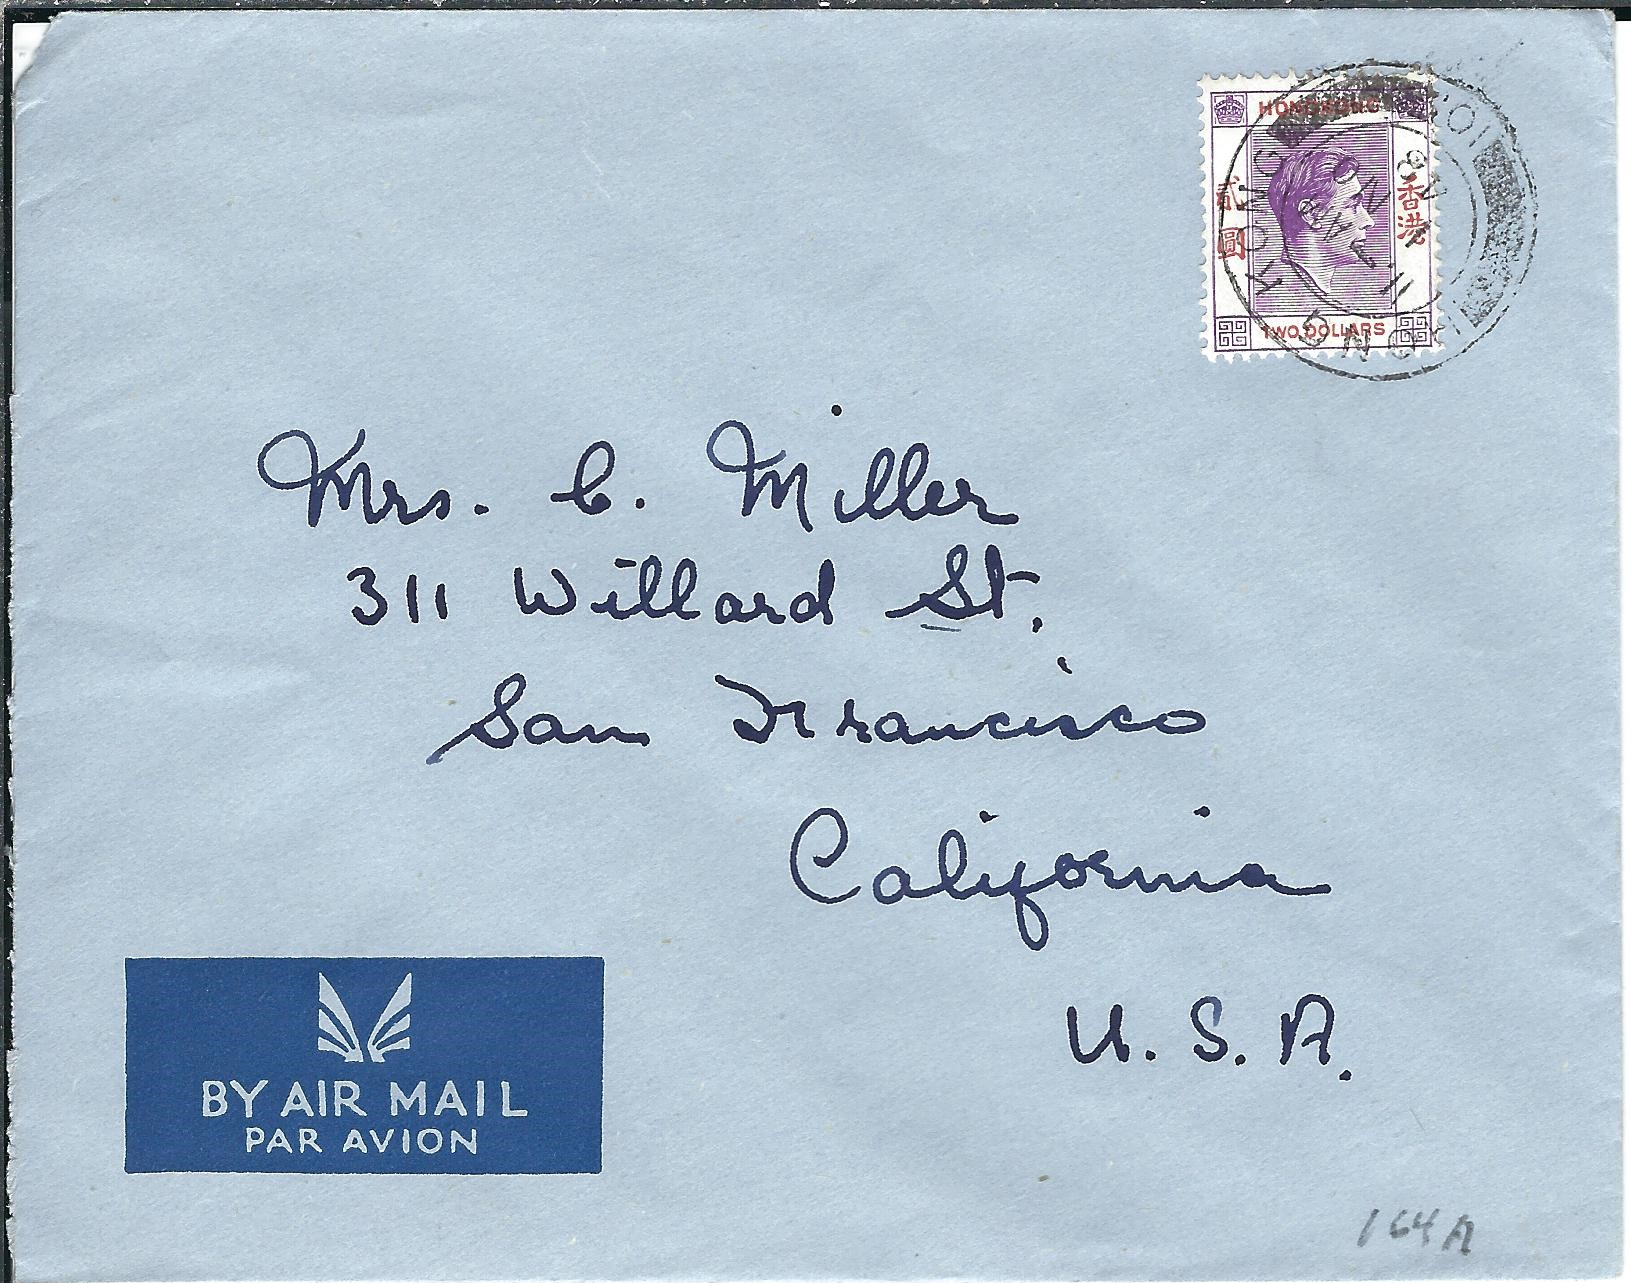 HONG KONG
貳圓
香港
TWO DOLLARS
HONG KONG
Mrs. C. Miller
311 Willard St.
San Francisco
California
U. S. A.
BY AIR MAIL
PAR AVION
164A